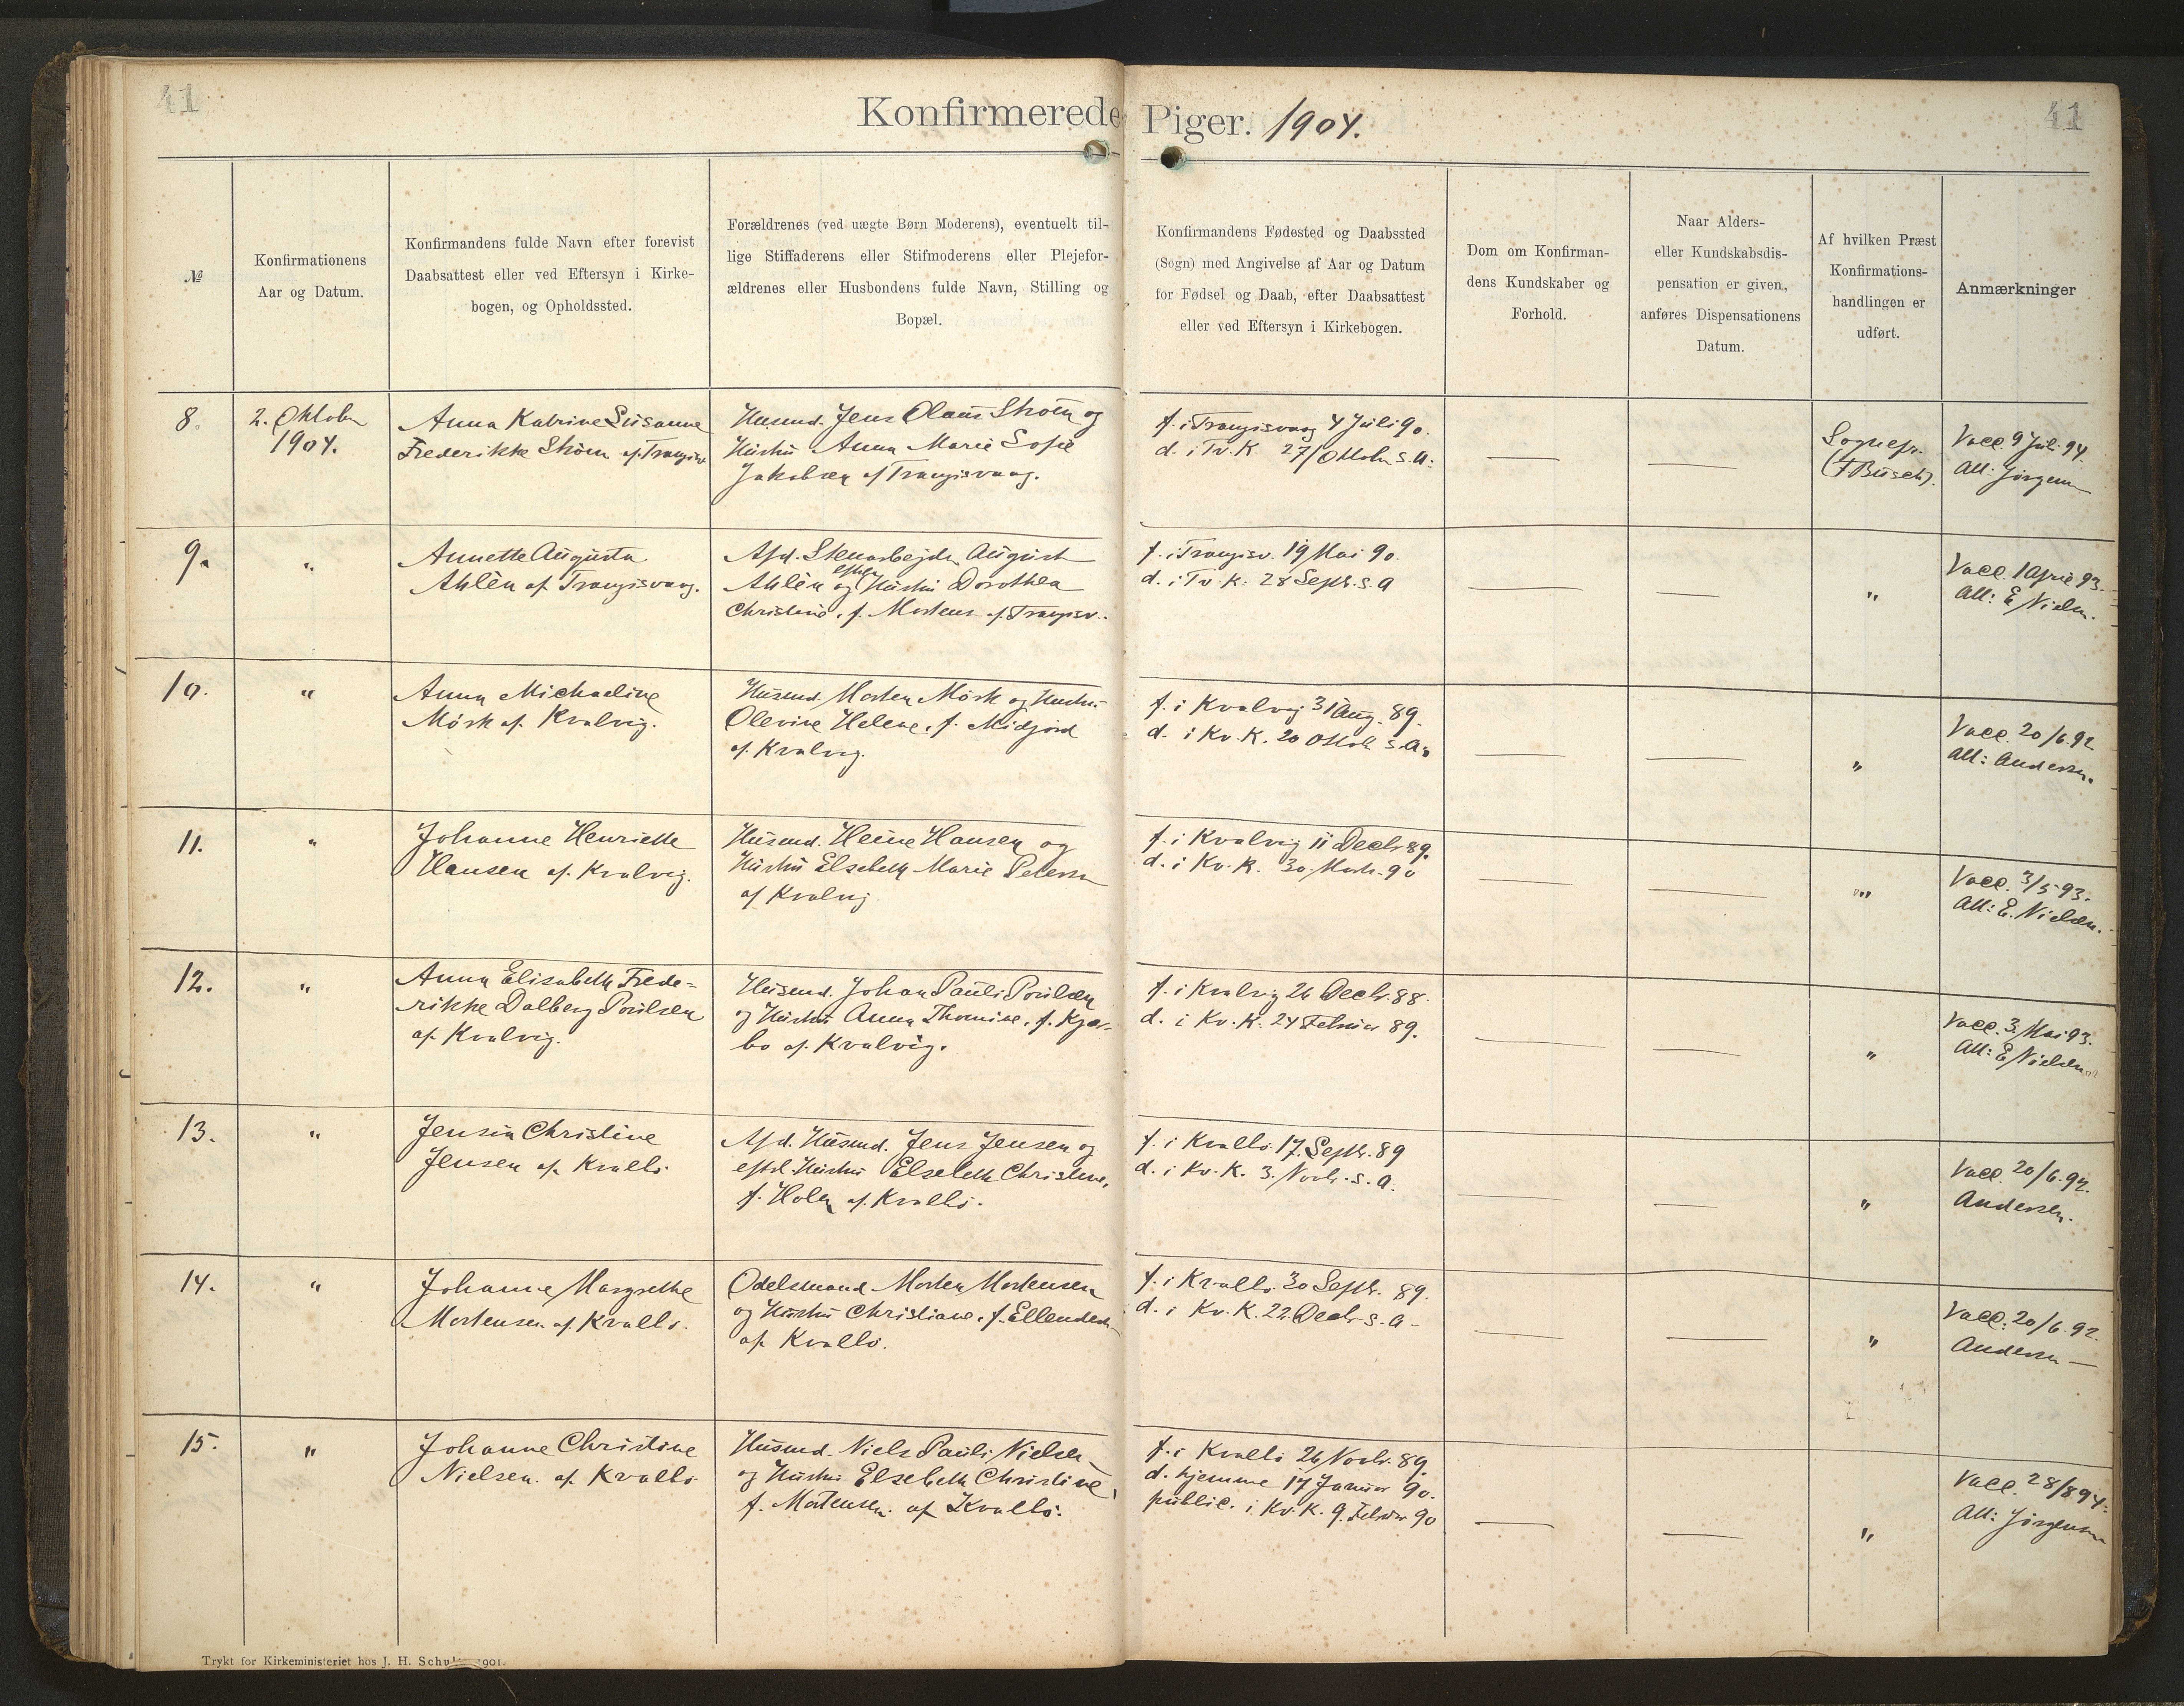 41
Konfirmerede Piger. 1904.
41
№
Konfirmationens
Aar og Datum.
Konfirmandens fulde Navn efter forevist
Daabsattest eller ved Eftersyn i Kirke-
bogen, og Opholdssted.
Forældrenes (ved uægte Børn Moderens), eventuelt til-
lige Stiffaderens eller Stifmoderens eller Plejefor-
ældrenes eller Husbondens fulde Navn, Stilling og
Bopæl.
Konfirmandens Fødested og Daabssted
(Sogn) med Angivelse af Aar og Datum
for Fødsel og Daab, efter Daabsattest
eller ved Eftersyn i Kirkebogen.
Dom om Konfirman-
dens Kundskaber og
Forhold.
Naar Alders-
eller Kundskabsdis-
pensation er given,
anføres Dispensationens
Datum.
Af hvilken Præst
Konfirmations-
handlingen er
udført.
Anmærkninger
8.
2. Oktober
1904.
Anna Katrine Susanne
Frederikke Strøm af Trangisv
Husmd. Jens Olaus Strøm og
Hustru Anna Marie Sofie
Jakobsen af Trangisvaag.
f. i Trangisvaag 4 Juli 90.
d. i Tv. K. 27/Oktober s. A.
Sognepr.
(F Busch).
Vacc. 9 Juli 94.
Att: Jørgensen
9.
"
Annette Augusta
Ahlén af Trangisvaag.
Afd. Stenarbejder August
Ahlén og efter Hustru Dorothea
Christine, f. Mortens af Trangisv.
f. i Trangisv. 19 Mai 90.
d. i Tv. K. 28 Septr. s. A
"
Vacc. 1 April 93.
Att: E Nielsen.
10.
"
Anna Michaeline
Mörk af Kvalvig.
Husmd. Morten Mörk og Hustru
Olevine Helene, f. Midjord
af Kvalvig.
f. i Kvalvig 31 Aug. 89.
d. i Kv. K. 20 Oktob s. A.
"
Vacc. 20/6. 92
Att: Andersen.
11.
"
Johanne Henriette
Hansen af Kvalvig.
Husmd. Heine Hansen og
Hustru Elsebeth Marie Petersen
af Kvalvig
f. i Kvalvig 11 Decbr 89.
d. i Kv. K. 30. Marts. 90
"
Vacc. 3/5 93.
Att: E. Nielsen.
12.
"
Anna Elisabeth Frede-
rikke Dalberg Poulsen
af Kvalvig.
Husmd. Johan Pauli Poulsen
og Hustru Anna Thomine, f. Kjær-
bo af Kvalvig.
f. i Kvalvig 26 Decbr. 88.
d. i Kv. K. 24 Februar 89.
"
Vacc. 3. Mai 93.
Att: E Nielsen
13.
"
Jensia Christine
Jensen af Kvalbö
Afd. Husmd. Jens Jensen og
eftl. Hustru Elsebeth Christine,
f. Holm af Kvalbö.
f. i Kvalbö 17. Septr. 89
d. i Kv. K. 3. Novbr. s. A.
"
Vacc. 20/6. 92.
Andersen.
14.
"
Johanne Margrethe
Mortensen af Kvalbö.
Odelsmand Morten Mortensen
og Hustru Christiane, f. Ellendersen
af Kvalbö.
f. i Kvalbö 30 Septr. 89.
d. i Kv. K. 22. Decbr. s. A
"
Vacc. 20/6. 92.
Andersen
15.
"
Johanne Christine
Nielsen af Kvalbö
Husmd. Niels Pauli Nielsen
og Hustru Elsebeth Christine,
f. Mortensen af Kvalbö.
f. i Kvalbö 26 Novbr. 89.
d. hjemme 17 Januar 90.
public. i Kv. K. 9. Februar 90
"
Vacc. 28/8 94.
Att: Jørgensen
Trykt for Kirkeministeriet hos J. H. Schultz 1901.